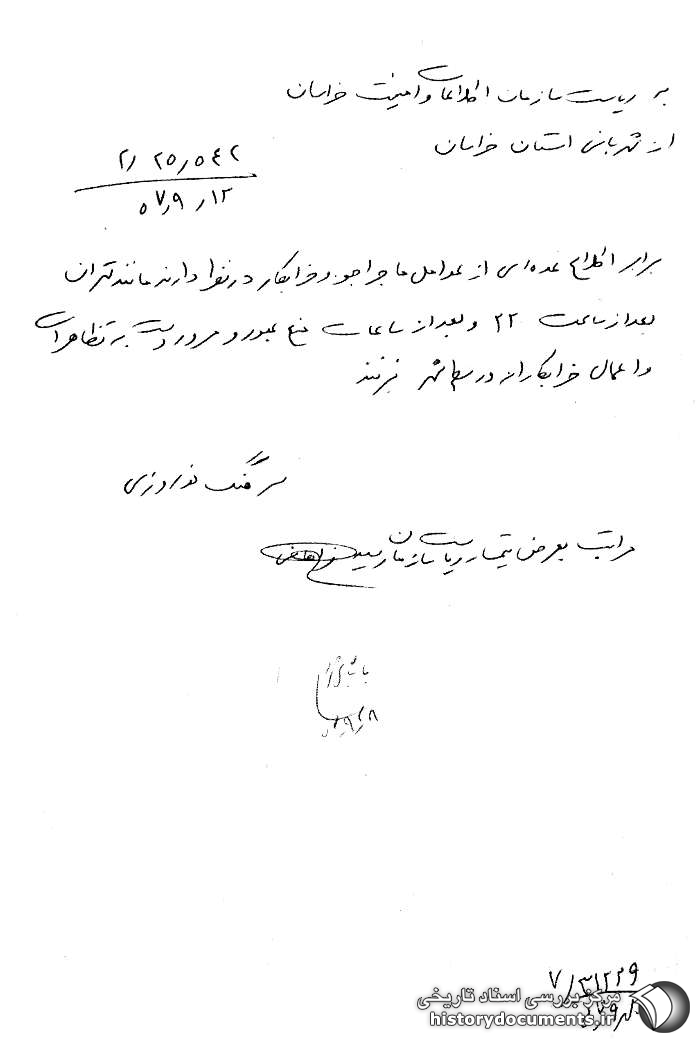 به ریاست سازمان اطلاعات و امنیت خراسان
از شهربانی استان خراسان
۲/ ۲۵٫۵۴۲
۵۷٫۹٫۱۲
برابر اطلاع عده‌ای از عوامل ماجراجو و خرابکار در نظر دارند مانند تهران
بعد از ساعت ۲۲ و بعد از ساعات منع عبور و مرور دست به تظاهرات
و اعمال خرابکارانه در سطح شهر بزنند
سرهنگ نوروزی
مراتب بعرض تیمسار ریاست سازمان رسید
۷/۳۱۲۲۹
مرکز بررسی اسناد تاریخی
historydocuments.ir